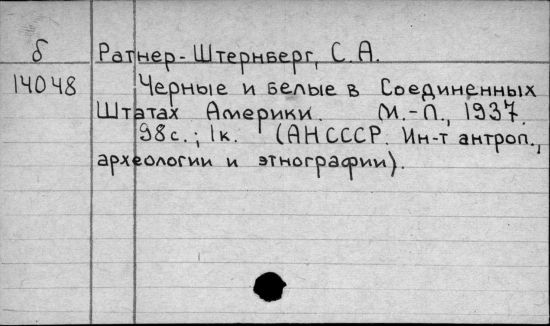 б Ратнер-Штернберг, С.А.
14048 Черные и белые в Соединенных
Штатах Америки. М.-Л., 1937.
98с.; 1к. (АН СССР. Ин-т антроп.,
археологии и этнографии).